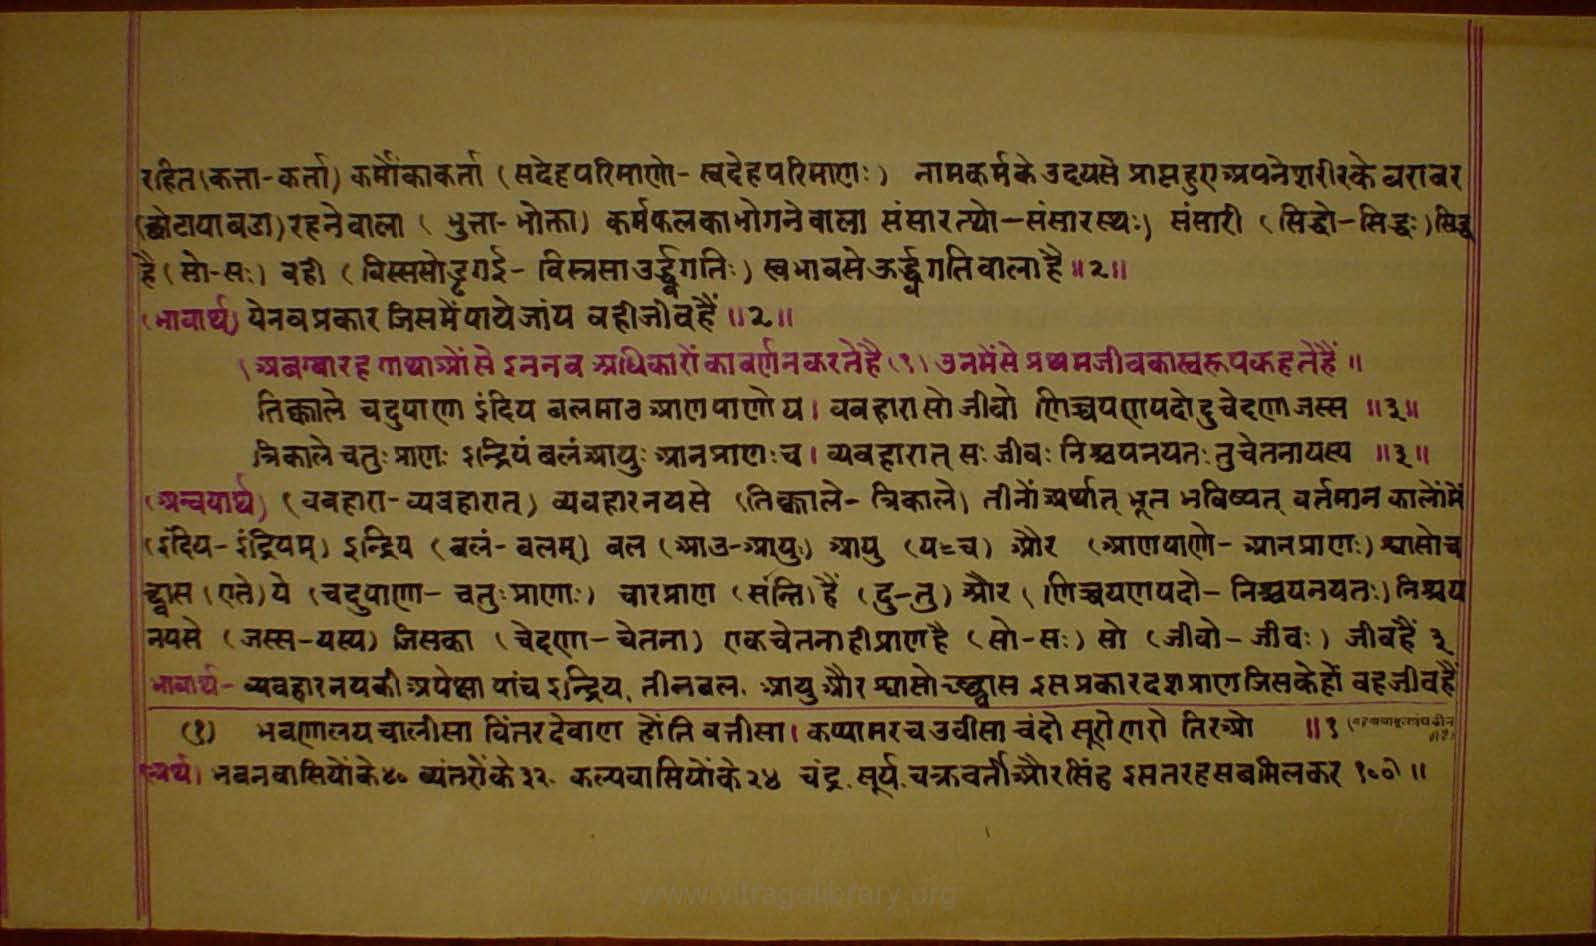 रहित(कत्ता-कर्ता) कर्मोंका कर्ता (सदेहपरिमाणो-स्वदेहपरिमाणः) नामकर्मके उदयसे प्राप्त हुए अपने शरीरके बराबर
(छोटा या बडा) रहनेवाला (भुत्ता-भोक्ता) कर्मफलका भोगनेवाला संसारत्थो-संसारस्थः) संसारी (सिद्धो-सिद्धः) सिद्ध
है (सो-सः) वही (विस्ससोड्ढगई-विस्त्रसा उर्द्ध्वगतिः) स्वभावसे ऊर्द्ध्वगतिवाला है॥२॥
(भावार्थ) ये नव प्रकार जिसमें पाये जांय वही जीव हैं ॥२॥
(अब ग्बारह गाथाओं से इन नव अधिकारों का वर्णन करते है (१) उनमेंसे प्रथम जीवका स्वरूप कहते हैं॥
तिक्काले चदुपाणा इंदिय बलमाउ आणपाणो य। ववहारा सो जीवो णिच्चयणयदो दु चेदणा जस्स ॥३॥
त्रिकाले चतुः प्राणः इन्द्रियं बलं आयुः आनप्राणः च। व्यवहारात् सः जीवः निश्चयनयतः तु चेतना यस्य ॥३॥
(अन्वयार्थ) (ववहारा-व्यवहारात्) व्यवहारनयसे (तिक्काले-त्रिकाले) तीनों अर्थात् भूत भविष्यत् वर्तमान कालोंमें
(इंदिय-इंद्रियम्) इन्द्रिय (बलं-बलम्) बल (आउ-आयुः) आयु (य-च) और (आणपाणो-आनप्राणः) श्वासोच
छ्वास (एते) ये (चदुपाणा-चतुः प्राणाः) चार प्राण (संन्ति) हैं (दु-तु) और (णिच्चयणयदो-निश्चयनयतः) निश्चय
नयसे (जस्स-यस्य) जिसका (चेदणा-चेतना) एक चेतना ही प्राण है (सो-सः) सो (जीवो-जीवः) जीव हैं ३
भावार्थ-व्यवहारनयकी अपेक्षा पांच इन्द्रिय, तीन बल, आयु और श्वासोच्छ्वास इस प्रकार दश प्राण जिसके हों वह जीव हैं
(१) भवणालय चालीसा विंतरदेवाण होंति बत्तीसा। कप्पामर चउवीसा चंदो सूरो णरो तिरओ ॥१
अर्थ। भवनवासियों के ४० व्यंतरों के ३२. कल्पवासियों के २४ चंद्र. सूर्य. चक्रवर्ती और सिंह इस तरह सब मिलकर १००॥
www.vitragelibrary.org